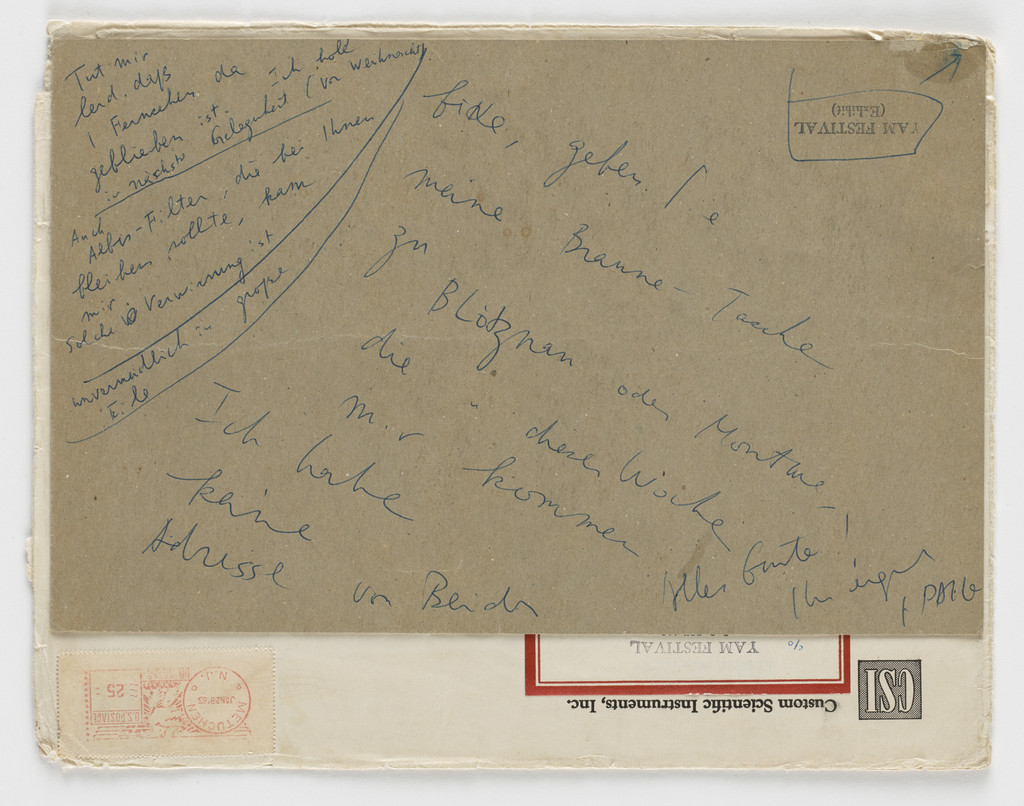 Tut mir
leid, daß
1 Fernseher da
geblieben ist. Ich hole
in nächster Gelegenheit (vor Weihnachts
Auch
Filter, die bei Ihnen
bleiben sollte, kam
mir
Solche Verwirrung ist
unvermeidlich in große
Eile
bitte, geben Sie
meine Braune-Tasche
zu Blötzman oder Montwe-
die in diesen Woche
mir kommen
Ich habe
keine
Adresse
von Beiden
Alles Gute!
Ihr
PAIK
YAM FESTIVAL
(Exhibit)
c/o
YAM FESTIVAL
Custom Scientific Instruments, Inc.
CSI
METUCHEN
N.J.
JAN 29 '63
U.S. POSTAGE
25